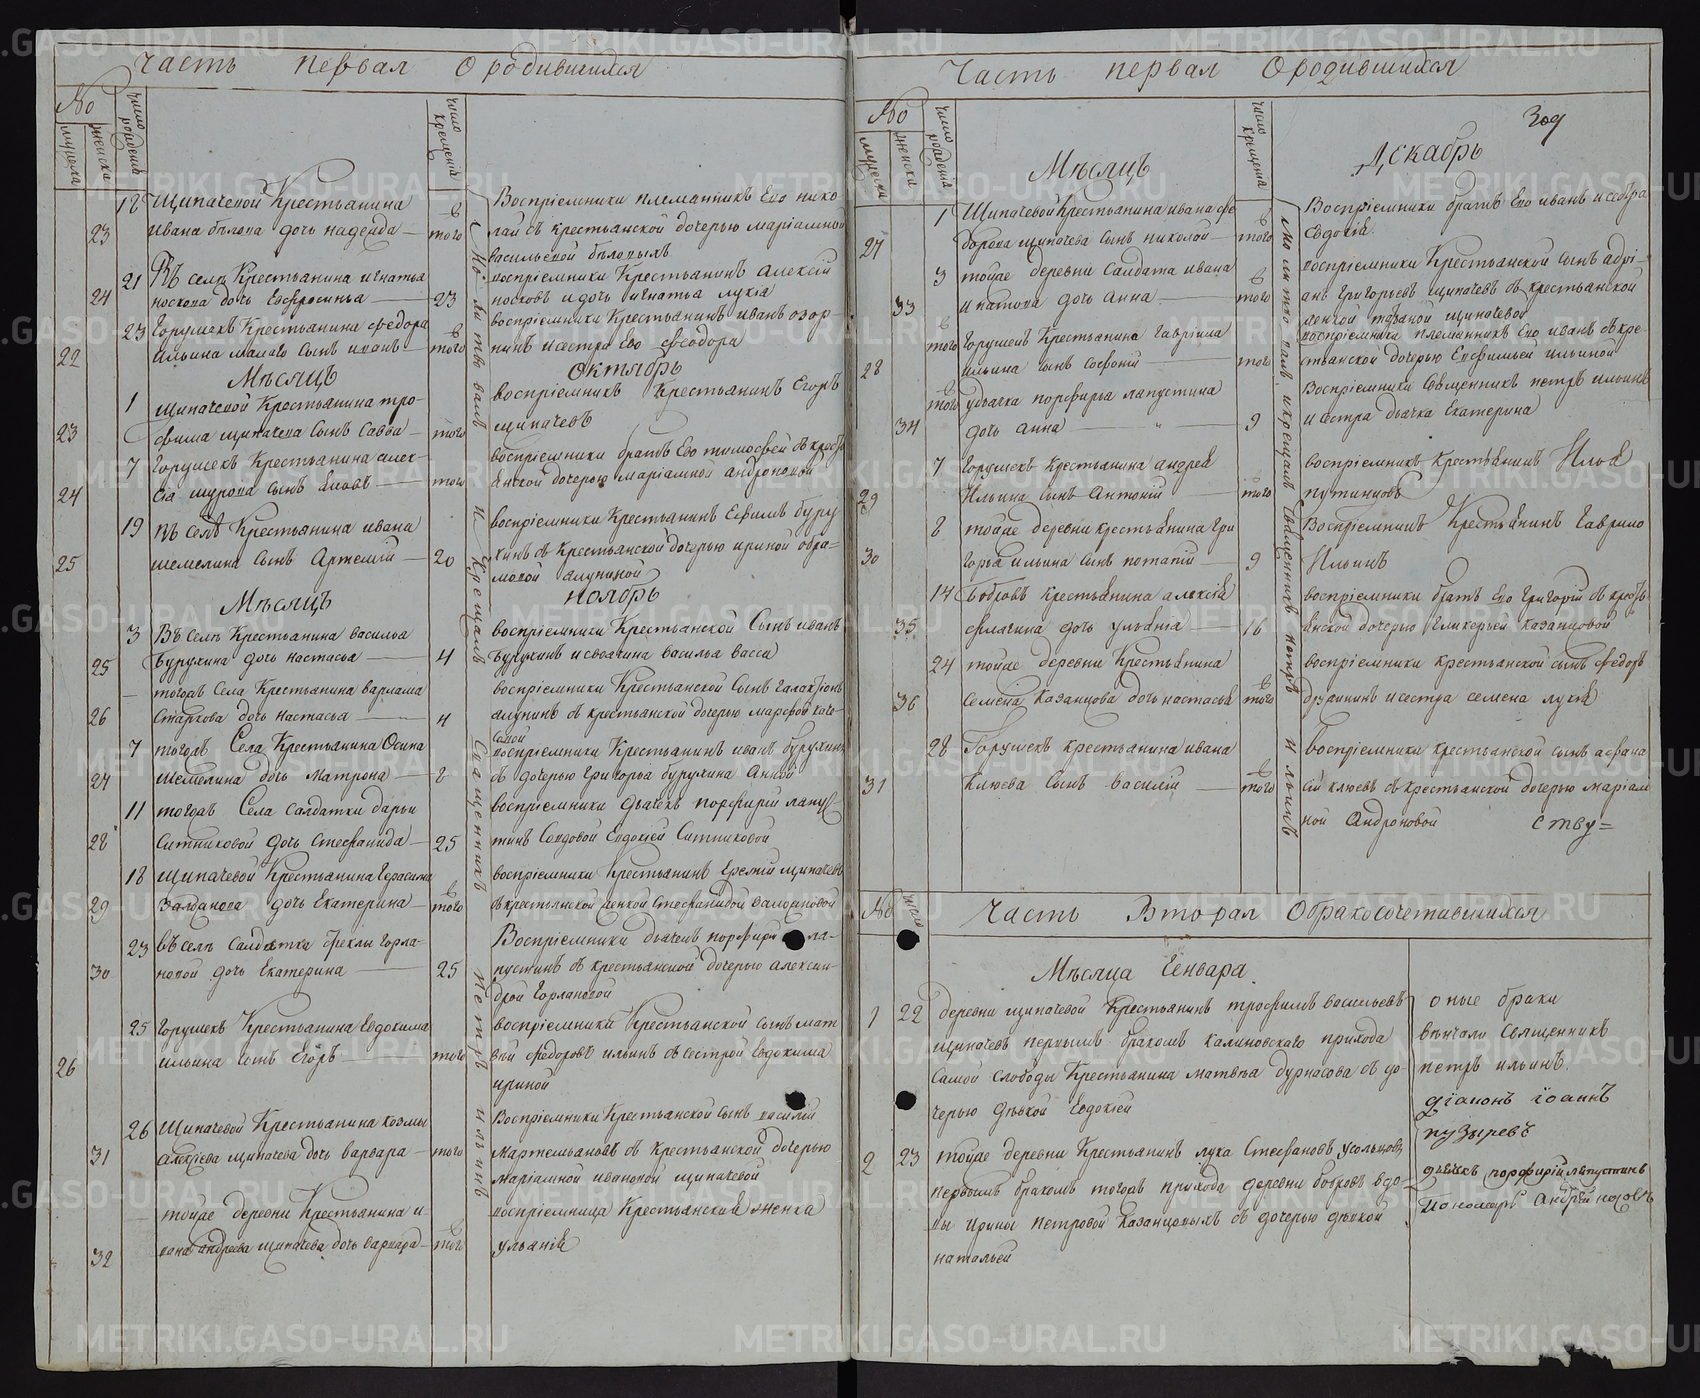 Часть первая О родившихся
№
мужеска
женска
число рождения
число крещенія
18 Щипачевой Крестьянина
23 Ивана белова дочь надежда — в того
Воспріемники племянникъ Его нико
лай съ крестьянской дочерью маріамной
васильевой беловыхъ
21 Въ селе Крестьянина игнатья
24 носкова дочь Евфросинья — 23
воспріемники Крестьянинъ алексій
носковъ и дочь игнатья лукія
23 Горушекъ Крестьянина федора
22 ильина малаго сынъ иванъ — в того
воспріемники Крестьянинъ иванъ
и сестра Его феодора
Мѣсяцъ Октябрь
1 щипачевой Крестьянина тро-
23 фима щипачева сынъ Савва — того
воспріемникъ Крестьянинъ Егоръ
щипачевъ
7 Горушекъ Крестьянина алек-
24 сія сынъ яковъ — того
воспріемники братъ Его тимофей съ кресть
янской дочерью маріамной андроновой
19 въ селѣ Крестьянина ивана
25 шемелина сынъ Артемій — 20
воспріемники Крестьянинъ Ефимъ буру
хинъ съ Крестьянской дочерью ириной
алупиной
Мѣсяцъ ноябрь
3 Въ селе Крестьянина василья
25 бурухина дочь настасья — 4
воспріемники Крестьянской Сынъ иванъ
бурухинъ и василья васса
— тогожъ села Крестьянина варлама
26 Старкова дочь настасья — 4
воспріемники Крестьянской Сынъ галактіонъ
алупинъ съ крестьянской дочерью марфой
7 тогожъ Села Крестьянина Осипа
27 шемелина дочь матрона — 8
воспріемники Крестьянинъ иванъ бурухинъ
съ дочерью григорья бурухина Анной
11 тогожъ Села Салдатки дарьи
28 Ситниковой дочь Стефанида — 25
воспріемники дьячекъ порфирій лапус-
тинъ Евдокіей Ситниковой
18 щипачевой Крестьянина Герасима
29 дочь Екатерина — в того
воспріемники Крестьянинъ Еремій щипачевъ
съ крестьянской женкой Стефанидой
23 въ селе Салдатки феклы горла-
30 новой дочь Екатерина — 25
Воспріемники дьячекъ порфирій ла-
пустинъ съ крестьянской дочерью алексан-
дрой Горлановой
25 Горушекъ Крестьянина Евдокима
26 ильина сынъ Егоръ — того
воспріемники Крестьянской сынъ мат
вѣй федоровъ ильинъ съ сестрой Евдокима
ириной
26 Щипачевой Крестьянина козмы
31 алексѣева щипачева дочь варвара — того
Воспріемники Крестьянской сынъ василій
мартемьяновъ съ Крестьянской дочерью
маріамной ивановой щипачевой
тойже деревни Крестьянина и
32 вана андреева щипачева дочь варвара — в того
воспріемница Крестьянская женка
ульанія
Молитвовалъ и Крещалъ Священникъ Петръ Ильинъ
Часть первая О родившихся
№
мужеска
женска
число рожденія
число крещенія
309
Мѣсяцъ Декабрь
1 Щипачевой Крестьянина ивана фе
27 дорова щипачева сынъ николай — в того
Воспріемники братъ Его иванъ и сестра
Евдокія
3 тойже деревни Салдата ивана
33 ипатова дочь анна — в того
воспріемники Крестьянской сынъ адрі-
анъ григорьевъ щипачевъ съ крестьянской
женкой щипачевой
в того Горушекъ Крестьянина гавріила
28 ильина сынъ Софоній — того
воспріемники племянникъ Его иванъ съ кре-
стьянской дочерью Евфимьей ильиной
в того у дьячка порфирья лапустина
34 дочь анна — 9
Воспріемники Священникъ петръ ильинъ
и сестра дьячка Екатерина
7 Горушекъ Крестьянина андрея
29 Ильина сынъ антоній — того
воспріемникъ Крестьянинъ Илья
путинцовъ
8 тойже деревни крестьянина гри
30 горья ильина сынъ потапій — 9
Воспріемникъ Крестьянинъ Гаврило
Ильинъ
14 Бобровъ Крестьянина алексія
35 флягина дочь ульанія — 16
воспріемники братъ Его Григорій съ кресть
янской дочерью гликерьей казанцовой
24 тойже деревни Крестьянина
36 семена Казанцова дочь настасья в того
воспріемники крестьянской сынъ федоръ
и сестра семена лукія
28 Горушекъ крестьянина ивана
31 Клюева Сынъ василій — в того
воспріемники крестьянской сынъ афана
сій клюевъ съ крестьянской дочерью маріам
ной Андроновой
Молитвовалъ и крещалъ Священникъ Петръ Ильинъ
№ число Часть Вторая О бракосочетавшихся
Мѣсяца Генваря
1 22 деревни щипачевой Крестьянинъ трофимъ васильевъ
щипачевъ первымъ бракомъ калиновскаго прихода
самой слободы Крестьянина матвѣя бурнасова съ до-
черью дѣвкой Евдокіей
2 23 тойже деревни Крестьянинъ лука Стефановъ усольцовъ
первымъ бракомъ тогожъ прихода деревни бобровъ вдо-
вы ирины петровой Казанцовыхъ съ дочерью дѣвкой
натальей
оные браки
вѣнчали Священникъ
петръ ильинъ
діаконъ іоаннъ
пузыревъ
дьячекъ порфирій лапустинъ
Пономарь Андрей носовъ
METRIKI.GASO-URAL.RU